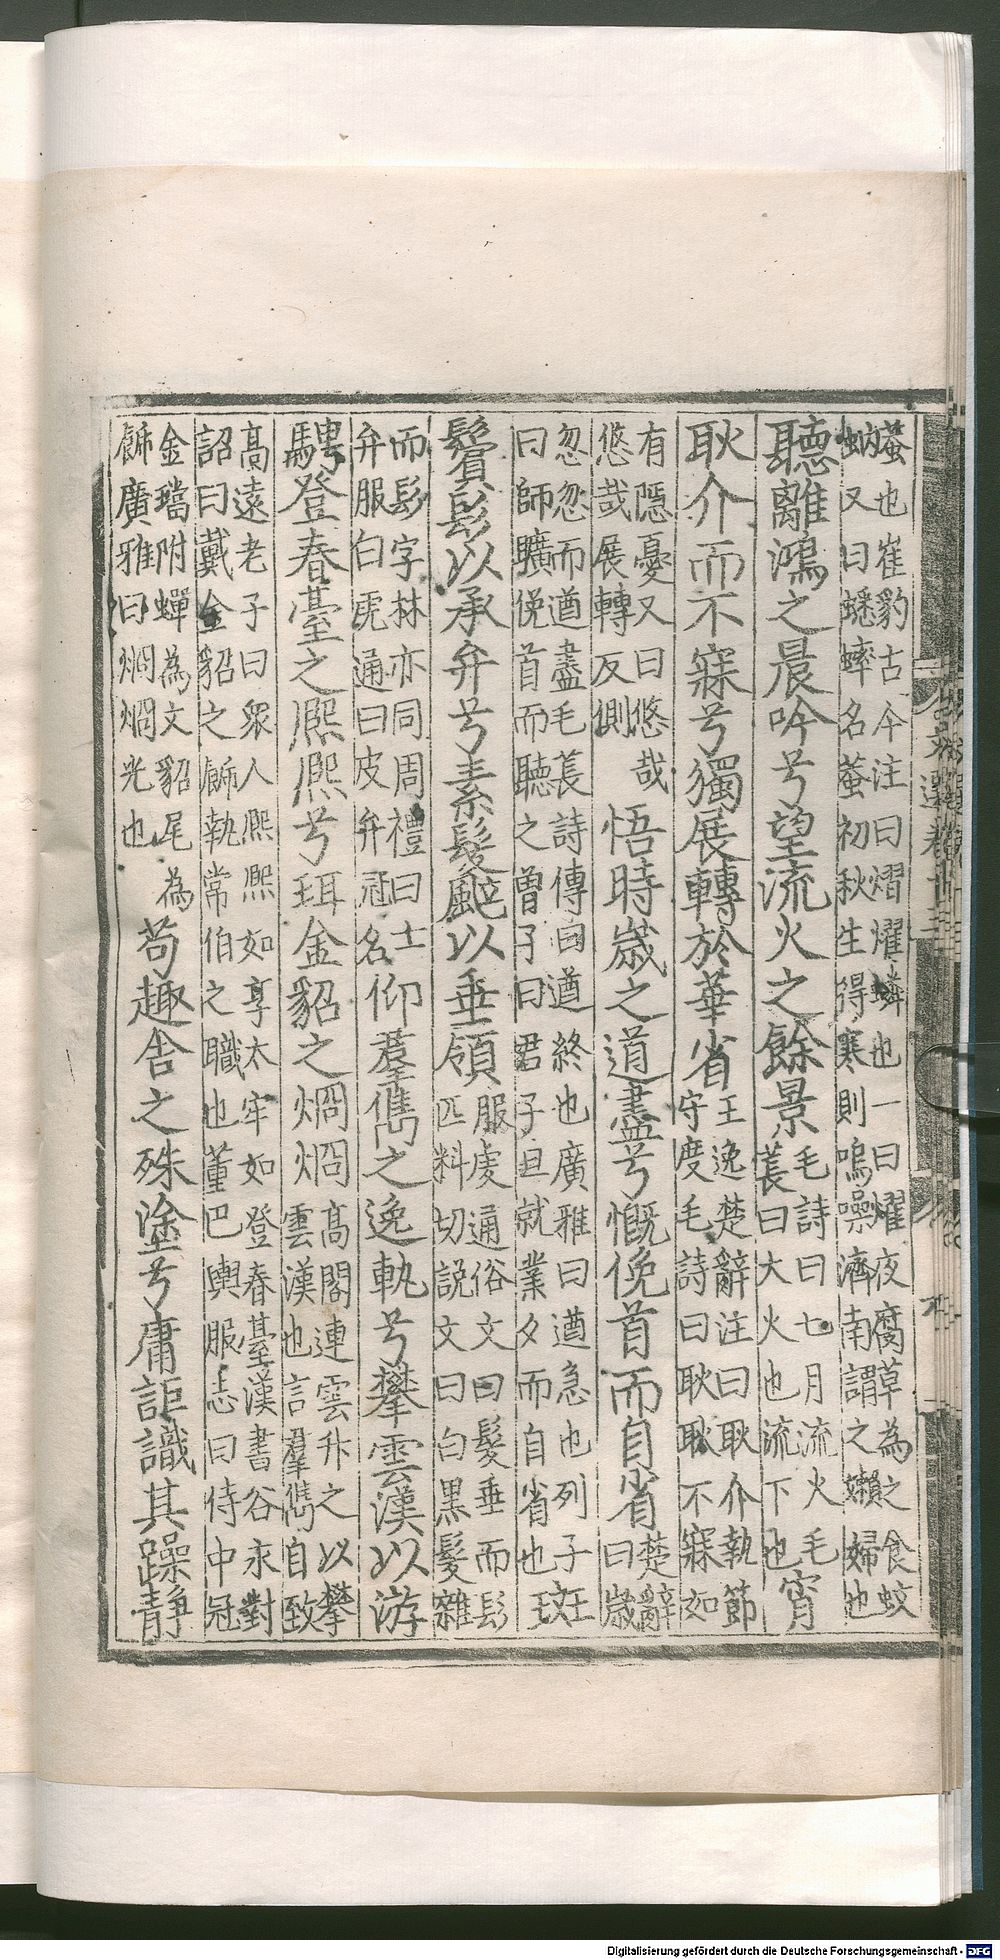 蛍也崔豹古今注曰熠燿燐也一曰燿夜腐草為之食蚊
蚋又曰蟋蟀名蛬初秋生得寒則鳴噪濟南謂之嬾婦也
聽離鴻之晨吟兮望流火之餘景毛詩曰七月流火毛
萇曰大火也流下也宵
耿介而不寐兮獨展轉於華省王逸楚辭注曰耿介執節
守度毛詩曰耿耿不寐如
有隱憂又曰悠哉
悠哉展轉反側悟時歲之遒盡兮慨俛首而自省楚辭
曰歲
忽忽而遒盡毛萇詩傳曰遒終也廣雅曰遒急也列子
曰師曠俛首而聽之曾子曰君子旦就業夕而自省也斑
鬢髟以承弁兮素髮颯以垂領服虔通俗文曰髮垂而髟
匹料切説文曰白黑髮雜
而髟字林亦同周禮曰士
弁服白虎通曰皮弁冠名仰羣儁之逸軌兮攀雲漢以游
騁登春臺之熙熙兮珥金貂之炯炯高閣連雲升之以攀
雲漢也言羣儁自致
高遠老子曰衆人熙熙如享太牢如登春臺漢書谷永對
詔曰戴金貂之飾執常伯之職也董巴輿服志曰侍中冠
金璫附蟬為文貂尾為
飾廣雅曰炯炯光也苟趣舍之殊塗兮庸詎識其躁靜
文選卷十三
Digitalisierung gefördert durch die Deutsche Forschungsgemeinschaft - DFG